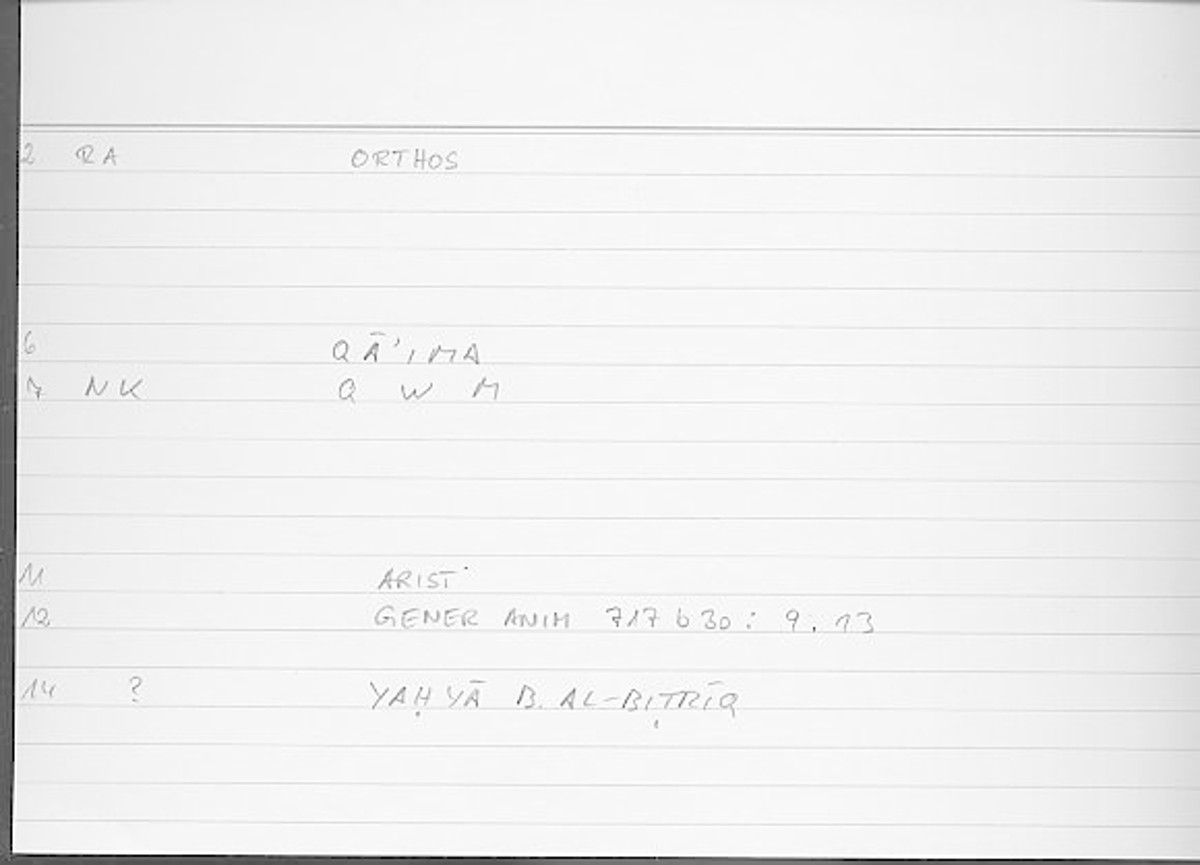 2 RA ORTHOS
6 QĀʾIMA
7 NK Q W M
11 ARIST
12 GENER ANIM 717 b 30 : 9.13
14 ? YAḤYĀ B. AL-BIṬRĪQ